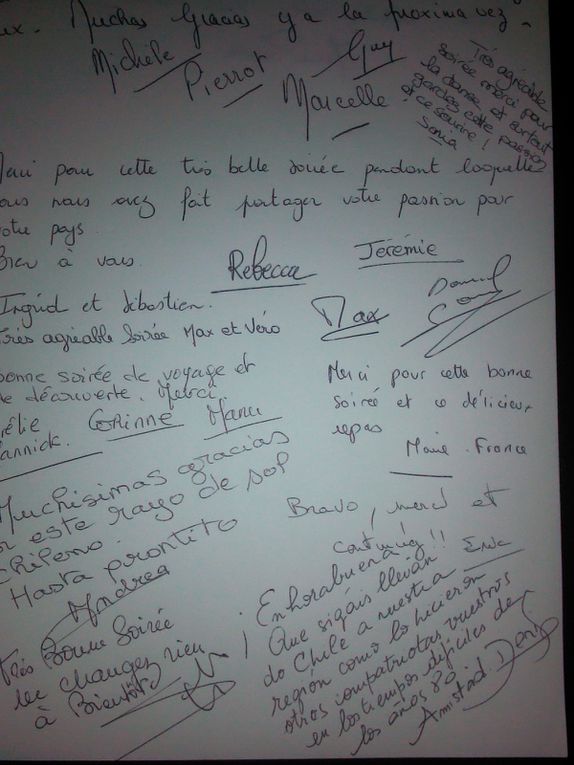 ux. Muchas Gracias y a la proxima vez.
Michèle
Pierrot
Guy
Marcelle
Très agréable
soirée merci pour
la danse et surtout
gardez cette passion
et ce sourire !
Sonia
Merci pour cette très belle soirée pendant laquelle
vous nous avez fait partager votre passion pour
votre pays
Bien à vous.
Rebecca
Jérémie
Ingrid et Sébastien.
Très agréable Soirée Max et Véro
Max
bonne soirée de voyage et
de découverte. Merci
élie
Yannick.
Corinne
Manu
Merci pour cette bonne
soirée et ce délicieux
repas
Marie-France
Muchísimas gracias
por este rayo de sol
chileno.
Hasta prontito
Andrea
Bravo, merci et
continuez !!
Très Bonne Soirée
ne changez rien
à Bientôt
Enhorabuena !
Que sigáis llevan
do Chile a nuestra
región como lo hicieron
otros compatriotas vuestros
en los tiempos difíciles de
los años 80.
Amistad.